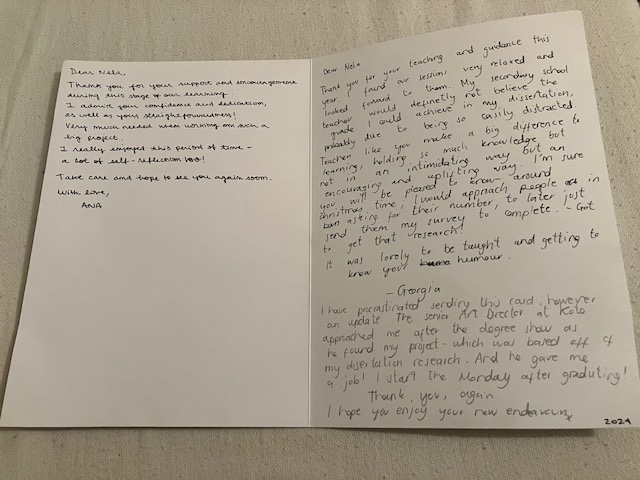 Dear Nela,
Thank you for your support and encouragement
during this stage of our learning.
I admire your confidence and dedication,
as well as your straightforwardness!
Very much needed when working on such a
big project.
I really enjoyed this period of time –
a lot of self-reflection too!
Take care and hope to see you again soon.
With love,
ANA
Dear Nela
Thank you for your teaching and guidance this
year, I found our sessions very relaxed and
looked forward to them. My secondary school
teacher would definetly not believe the
grade I could achieve in my dissertation,
probably due to being so easily distracted.
Teacher like you make a big difference to
learning, holding so much knowledge but
not in an intimidating way but an
encouraging and uplifting way. I'm sure
you will be pleased to know around
christmas time, I would approach people in
ban asking for their number, to later just
send them my survey to complete. - Got
to get that research!
It was lovely to be taught and getting to
know your humour.
- Georgia
I have procrastinated sending this card, however
an update The senior Art Director at Koto
approached me after the degree show as
he found my project - which was based off of
my disertation research. And he gave me
a job! I start the Monday after graduting!
Thank you, again
I hope you enjoy your new endeavour x
2024